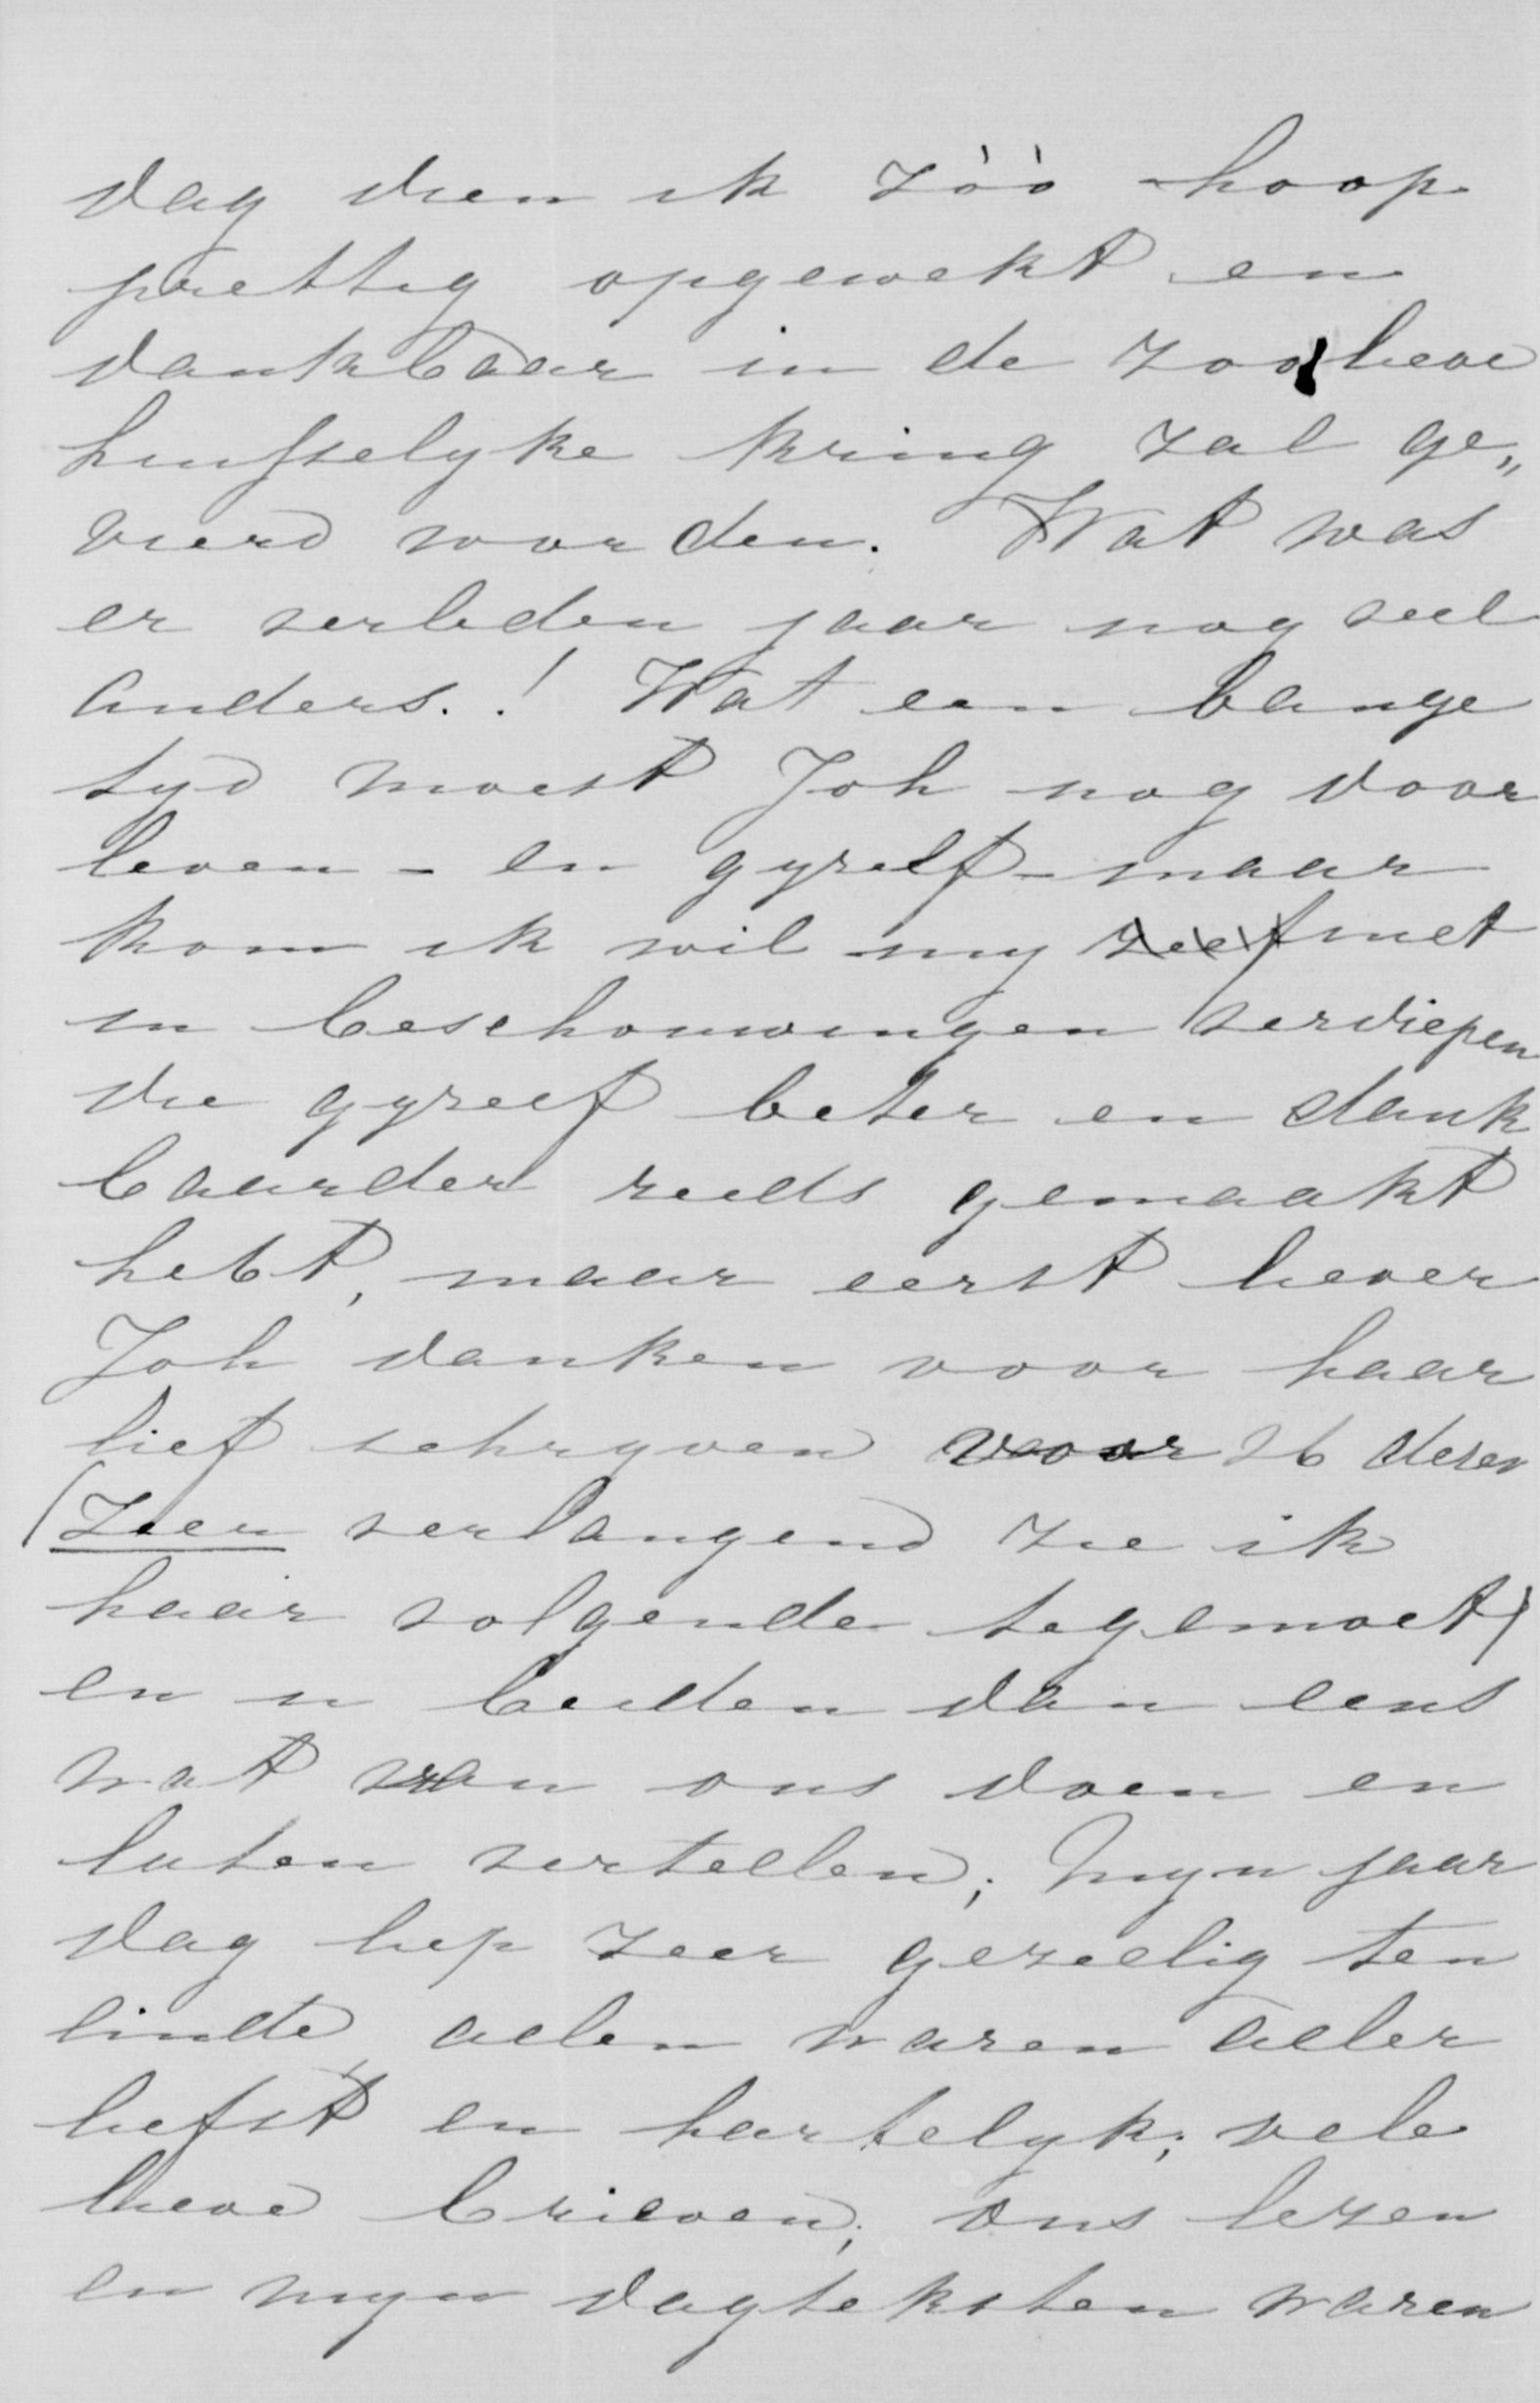 dag dien ik zóó hoop
prettig opgewekt en
dankbaar in de zoo lieve
huisselyke kring zal ge„
vierd worden. Wat was
er verleden jaar nog veel
anders.! Wat een bange
tyd moest Joh nog door
leven - en gyzelf - maar
kom ik wil my zelf niet
in beschouwingen verdiepen
die gyzelf beter en dank
baarder reeds gemaakt
hebt, maar eerst liever
Joh danken voor haar
lief schryven voor 26 dezer
(Zeer verlangend zie ik
haar volgende tegemoet)
en u beiden dan eens
wat van ons doen en
laten vertellen; Myn jaar
dag liep zeer gezellig ten
einde allen waren aller
liefst en hartelyk; vele
lieve brieven; ons lezen
en myn dagteksten waren